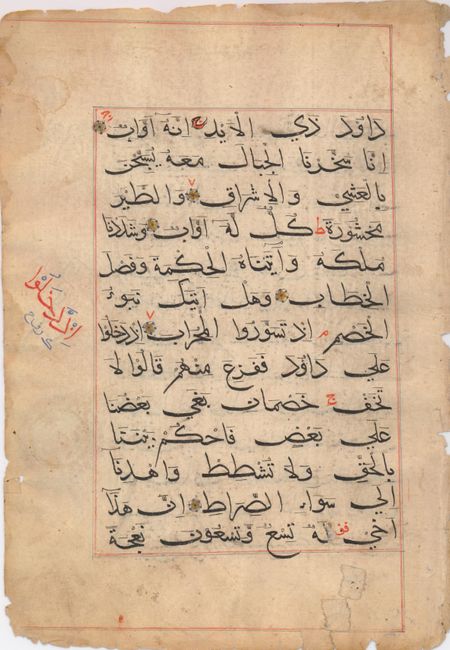 داود ذي الايد ج انه اواب
انا سخرنا الجبال معه يسبحن
بالعشي والاشراق والطير
محشورة ط كل له اواب وشددنا
ملكه واتيناه الحكمة وفصل
الخطاب وهل اتيك نبؤ
الخصم م اذ تسوروا المحراب اذ دخلوا
علي داود ففزع منهم قالوا لا
تخف ج خصمان بغي بعضنا
علي بعض فاحكم بيننا
بالحق ولا تشطط واهدنا
الي سواء الصراط ان هذا
اخي قف له تسع وتسعون نعجة
اذ دخلوا